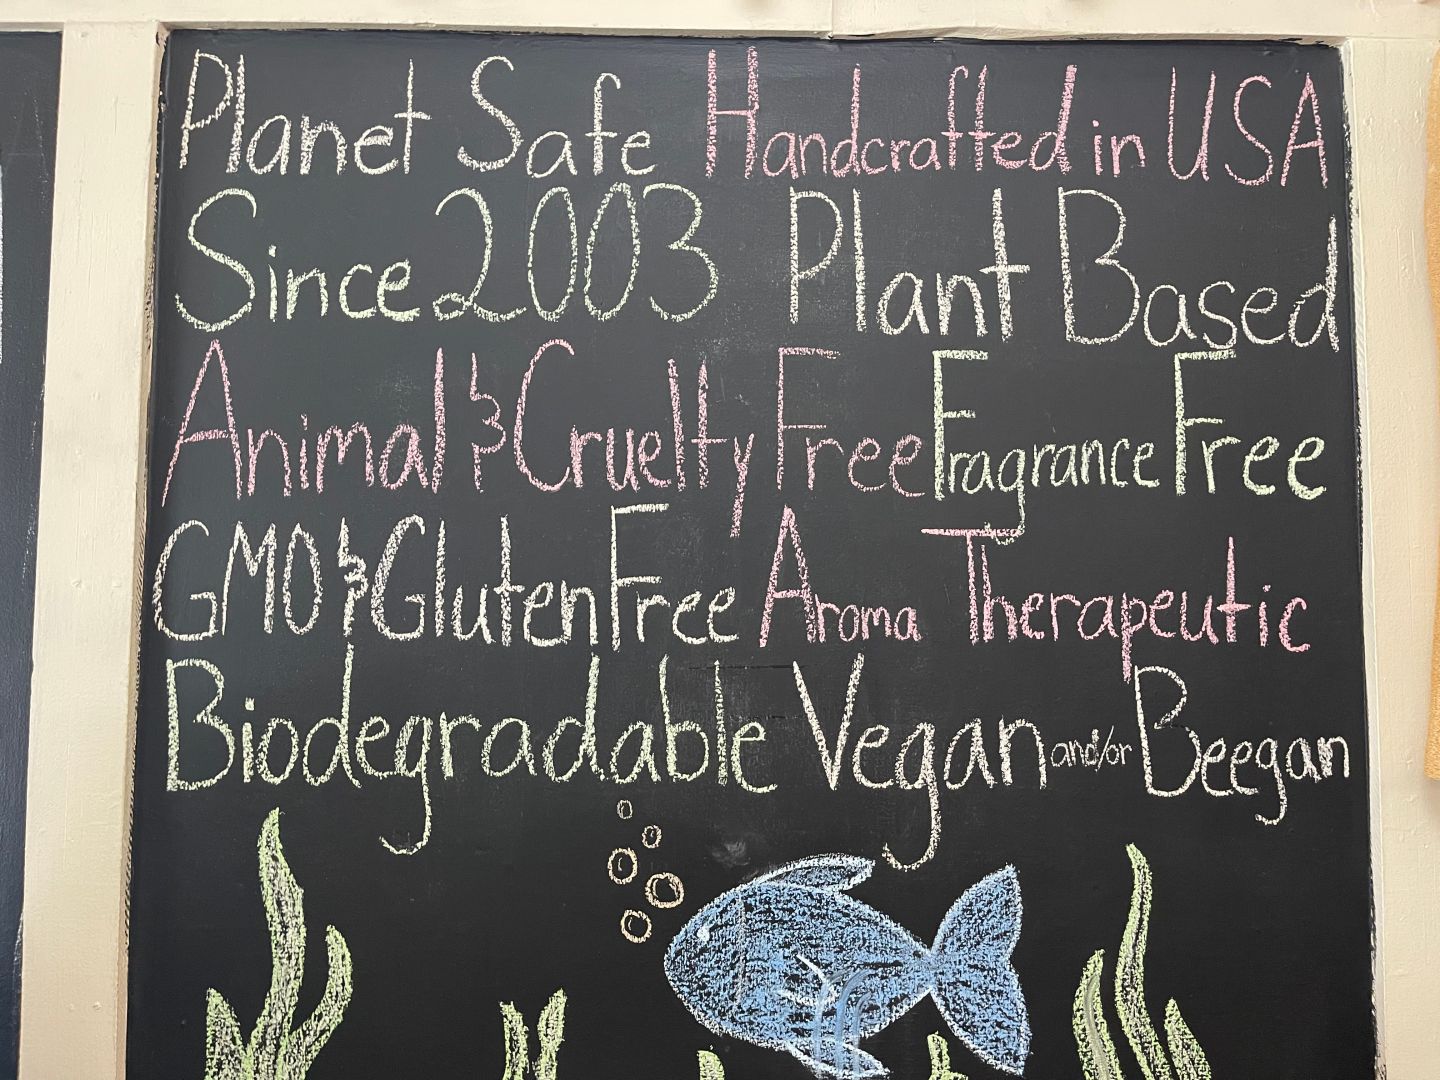 Planet Safe Handcrafted in USA
Since 2003 Plant Based
Animal & Cruelty Free Fragrance Free
GMO & Gluten Free Aroma Therapeutic
Biodegradable Vegan and/or Beegan